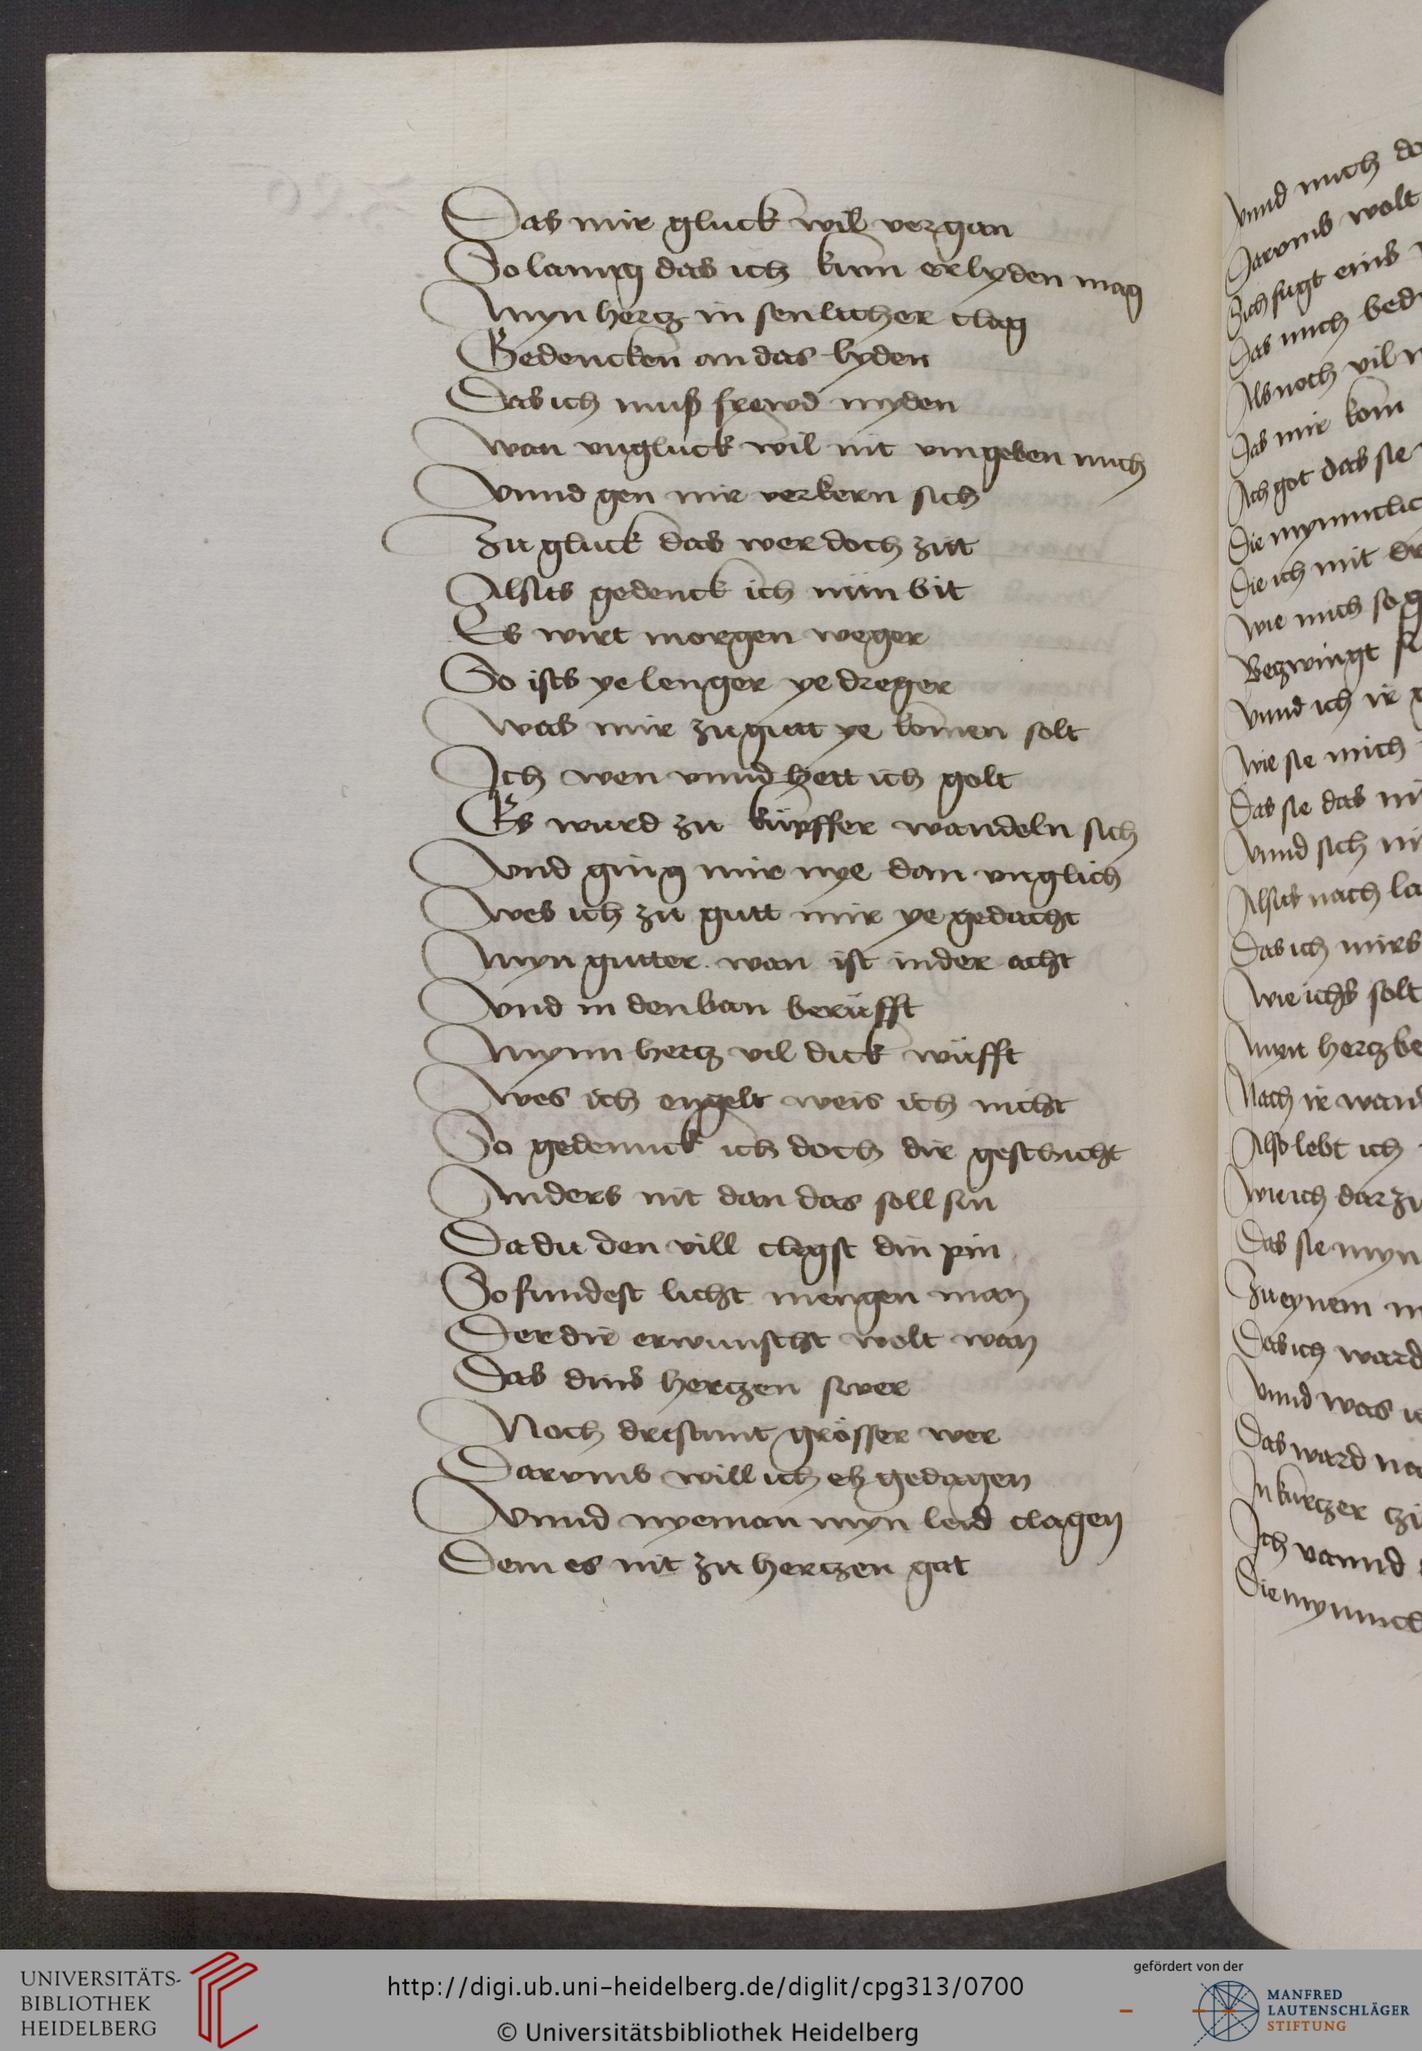 Das mir gluck wil vergan
So lanng das ich kum erlyden mag
Myn hertz in senlicher clag
Gedencken an das lyden
Das ich muß frewd myden
Wan vngluck wil nit vmgeben mich
Vnnd gen mir verkern sich
Zu gluck das wer doch zitt
Alsus gedenck ich num bit
Es wirt morgen weger
So ists ye lenger ye dreger
Was mir zu gutt ye komen solt
Ich wen vnnd hett ich golt
Es wurd zu küpffer wandeln sich
Vnd ging mir nye dan vnglich
Wes ich zu gutt mir ye gedacht
Myn gutter wan ist in der acht
Vnd in den ban berüfft
Mynn hertz vil dick wüfft
Wes ich engelt weis ich nicht
So gedennck ich doch dir geschicht
Anders nit dan das soll sin
Da du den vill clagst din pin
So fundest licht mengen man
Der dir erwunscht wolt wan
Das dins hertzen swer
Noch dristunt grösser wer
Darvmb will ich eß gedagen
Vnnd nyeman myn leid clagen
Dem es nit zu hertzen gat
Vnnd mich
Darvmb wolt
Sich fugt eins
Das mich
Als noch vil
Das mir kom
Ach got das sie
Die
Die ich mit
Wie mich so
Betzwingt
Vnnd ich ir
Wie sie mich
Das sie das
Vnnd sich
Alsus nach
Das ich mirs
Wie ichs solt
Myn hertz
Nach ir
Also lebt ich
Wie ich dar zu
Das sie myn
Zu eynem
Das ich ward
Vnnd was
Das ward
In kurtzer
Ich vannd
Die
UNIVERSITÄTS-
BIBLIOTHEK
HEIDELBERG
http://digi.ub.uni-heidelberg.de/diglit/cpg313/0700
© Universitätsbibliothek Heidelberg
gefördert von der
MANFRED
LAUTENSCHLÄGER
STIFTUNG